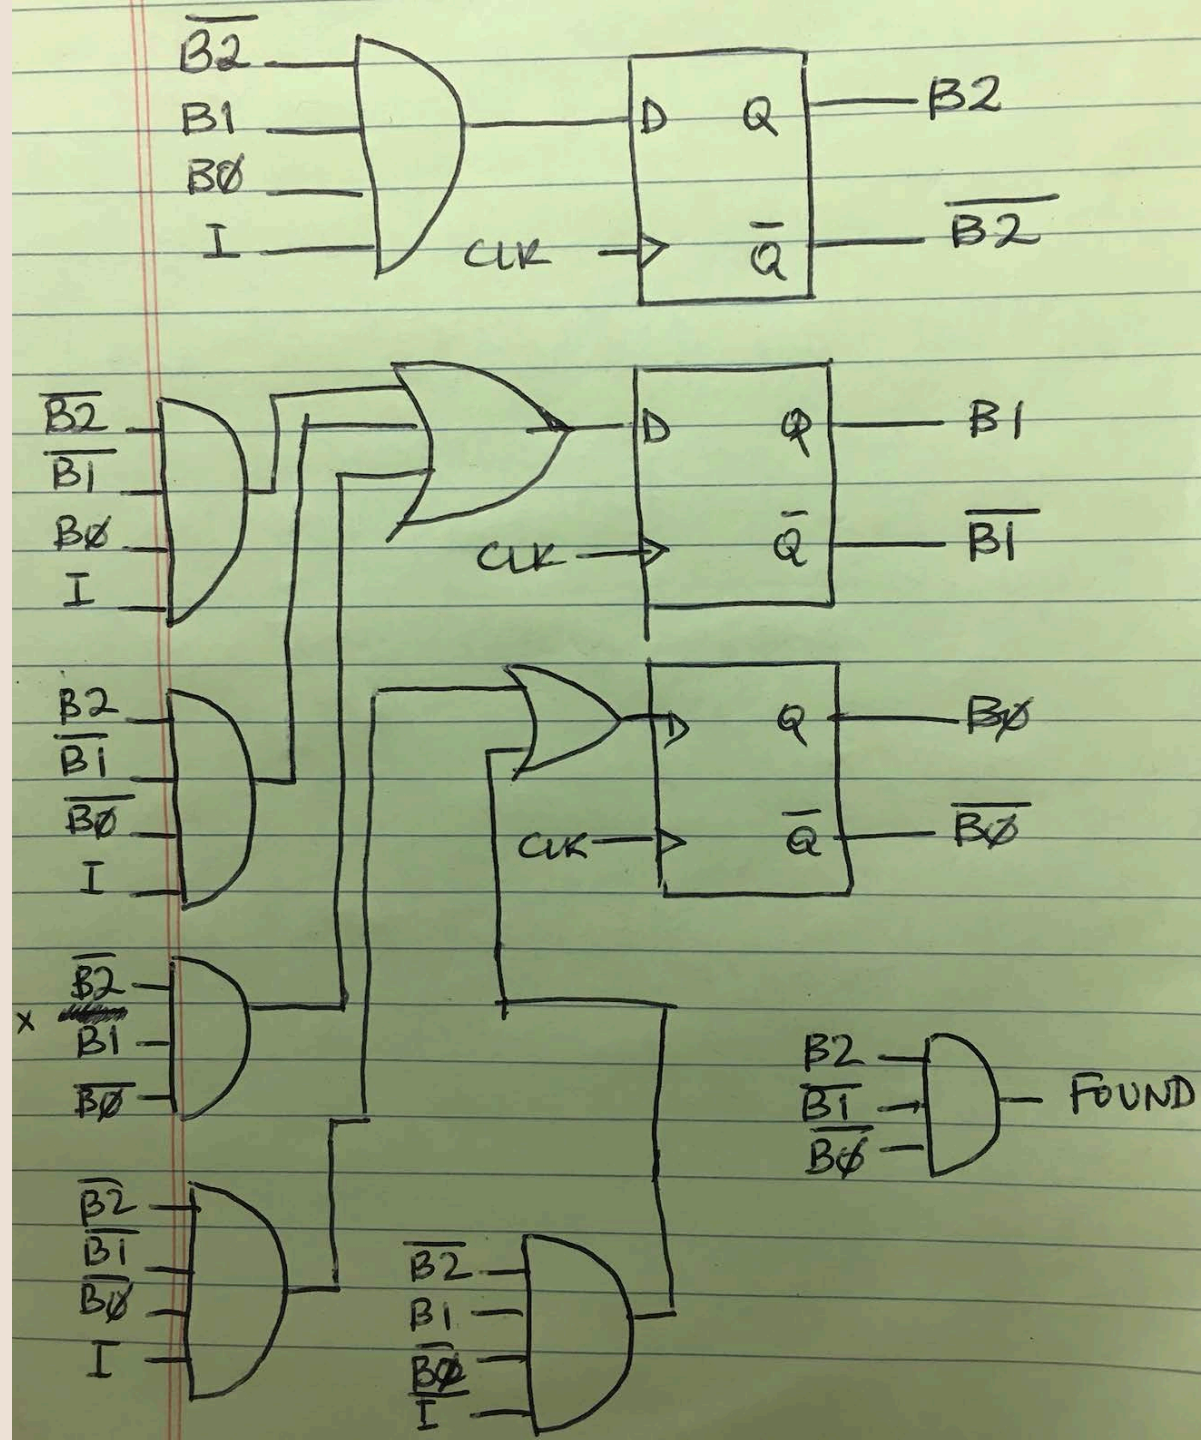 B̅2̅
B1
BØ
I
CLK
D Q
Q̅
B2
B̅2̅
B̅2̅
B̅1̅
BØ
I
CLK
D Q
Q̅
B1
B̅1̅
B2
B̅1̅
B̅Ø̅
I
CLK
D Q
Q̅
BØ
B̅Ø̅
B̅2̅
x
B1
B̅Ø̅
B2
B̅1̅
B̅Ø̅
FOUND
B̅2̅
B̅1̅
B̅Ø̅
I
B̅2̅
B1
B̅Ø̅
I̅